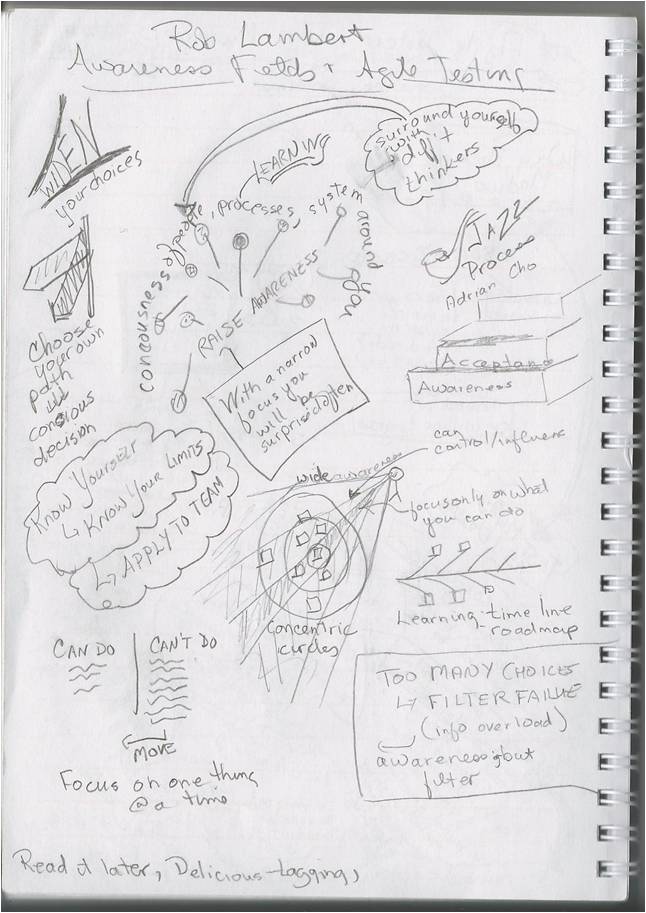 Rob Lambert
Awareness Fields + Agile Testing
WIDEN
your choices
LEARNING
surround yourself
with
diff't
thinkers
conciousness of people, processes, system around you
RAISE AWARENESS
JAZZ
Process
Adrian Cho
Choose
your own
path
conscious
decision
With a narrow
focus you
will be
surprised often
Acceptance
Awareness
KNOW YOURSELF
↳ KNOW YOUR LIMITS
↳ APPLY TO TEAM
wide awareness
can
control/influence
focus only on what
you can do
concentric
circles
Learning time line
- roadmap
CAN DO
CAN'T DO
MOVE
Focus on one thing
@ a time
TOO MANY CHOICES
↳ FILTER FAILUE
(info overload)
awareness but
filter
Read it later, Delicious-tagging,